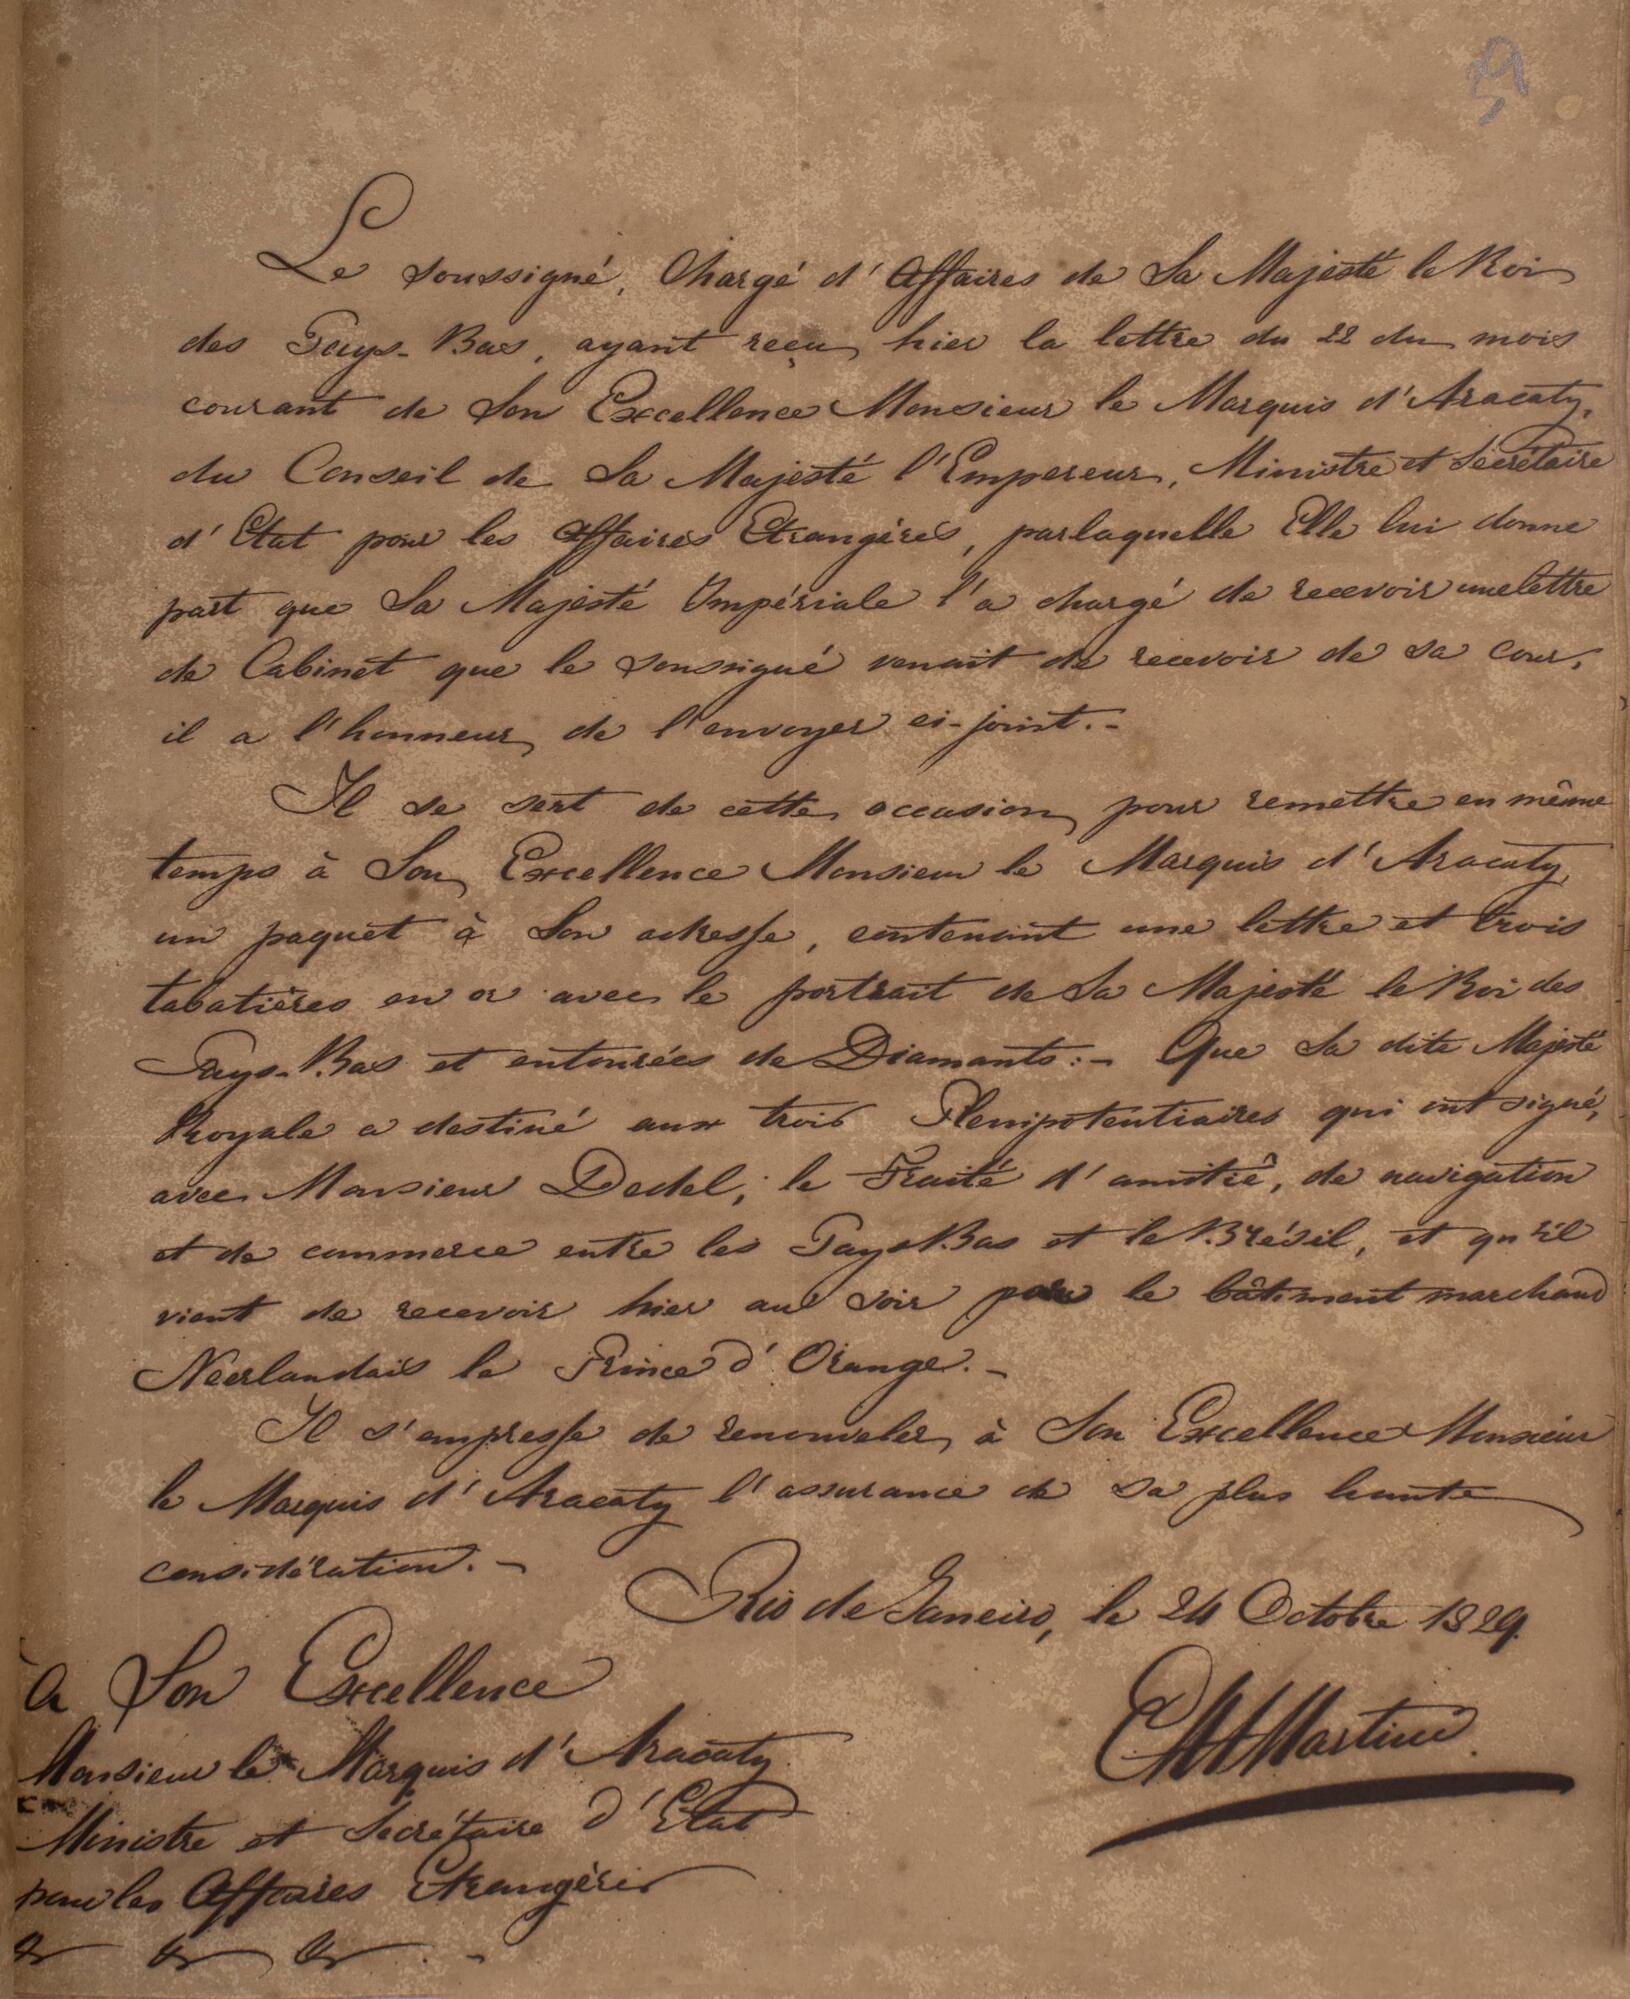 Le soussigné, Chargé d'Affaires de Sa Majesté le Roi
des Pays-Bas, ayant reçu hier la lettre du 22 du mois
courant de Son Excellence Monsieur le Marquis d'Aracaty,
du Conseil de Sa Majesté l'Empereur, Ministre et Secrétaire
d'Etat pour les Affaires Etrangéres, par laquelle Elle lui donne
part que Sa Majesté Impériale l'a chargé de recevoir une lettre
de Cabinet que le soussigné venait de recevoir de sa cour,
il a l'honneur de l'envoyer ci-joint.-
Il se sert de cette occasion pour remettre en même
temps à Son Excellence Monsieur le Marquis d'Aracaty,
un paquet à Son adresse, contenant une lettre et trois
tabatières en or avec le portrait de Sa Majesté le Roi des
Pays-Bas et entourées de Diamants:- Que Sa dite Majesté
Royale a destiné aux trois Plenipotentiaires qui ont signé,
avec Monsieur Dedel, le Traité d'amitié, de navigation
et de commerce entre les Pays Bas et le Brésil, et qu'il
vient de recevoir hier au soir par le bâtiment marchand
Néerlandais le Prince d'Orange.-
Il s'empresse de renouveler à Son Excellence Monsieur
le Marquis d'Aracaty l'assurance de sa plus haute
considération.-
Rio de Janeiro, le 24 Octobre 1829.
à Son Excellence
Monsieur le Marquis d'Aracaty
Ministre et Secrétaire d'Etat
pour les Affaires Etrangéres
& & & . -
Martini